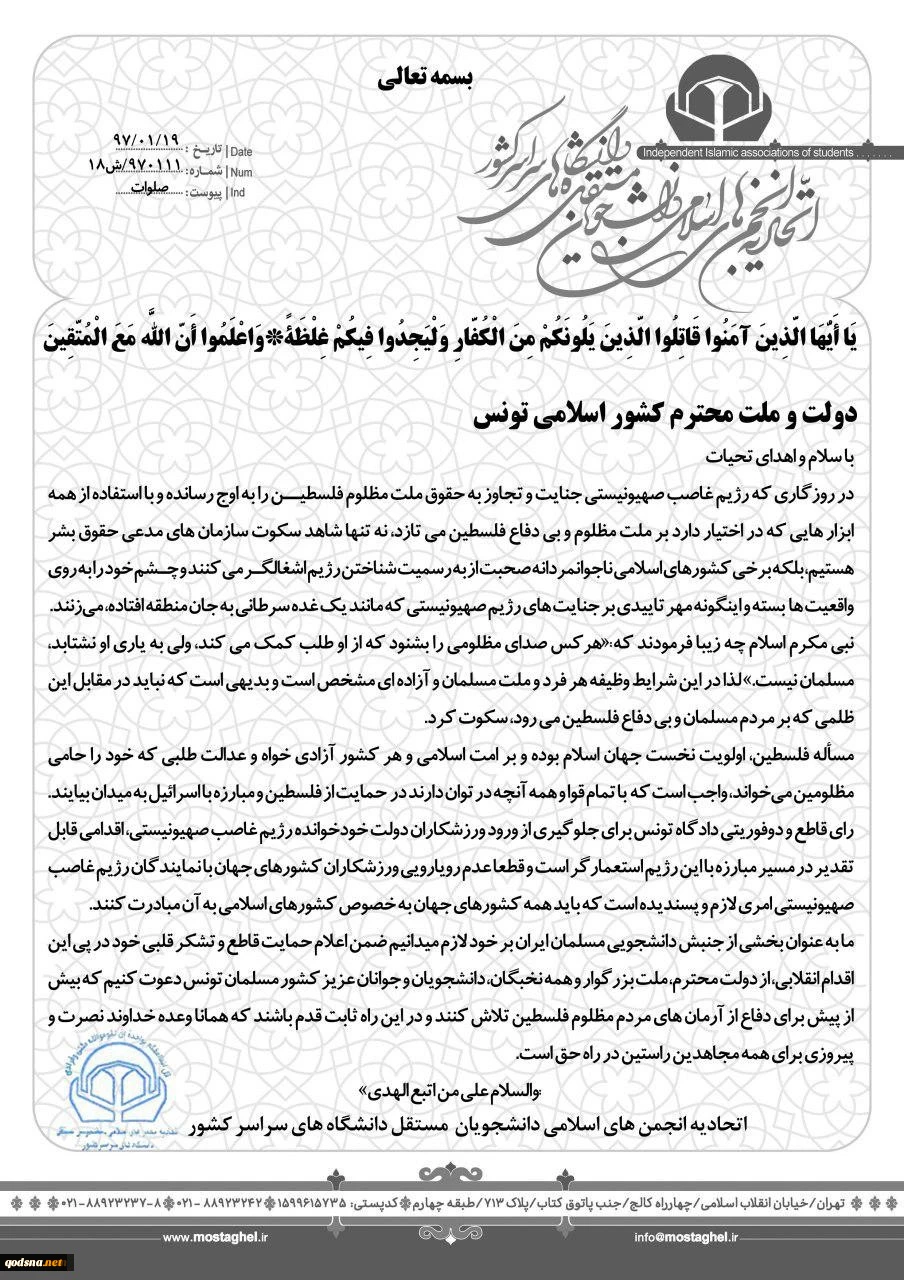 بسمه تعالی
Independent Islamic associations of students .......
اتحادیه انجمن های اسلامی دانشجویان مستقل دانشگاه های سراسر کشور
Date | تاریخ : ۹۷/۰۱/۱۹
Num | شماره: ۹۷۰۱۱۱/ش۱۸
Ind | پیوست: صلوات
يَا أَيُّهَا الَّذِينَ آمَنُوا قَاتِلُوا الَّذِينَ يَلُونَكُمْ مِنَ الْكُفَّارِ وَلْيَجِدُوا فِيكُمْ غِلْظَةً*وَاعْلَمُوا أَنَّ اللَّه مَعَ الْمُتَّقِينَ
دولت و ملت محترم کشور اسلامی تونس
با سلام و اهدای تحیات
در روزگاری که رژیم غاصب صهیونیستی جنایت و تجاوز به حقوق ملت مظلوم فلسطیـــن را به اوج رسانده و با استفاده از همه
ابزار هایی که در اختیار دارد بر ملت مظلوم و بی دفاع فلسطین می تازد، نه تنها شاهد سکوت سازمان های مدعی حقوق بشر
هستیم، بلکه برخی کشورهای اسلامی ناجوانمردانه صحبت از به رسمیت شناختن رژیم اشغالگـر می کنند و چـشم خود را به روی
واقعیت ها بسته و اینگونه مهر تاییدی بر جنایت های رژیم صهیونیستی که مانند یک غده سرطانی به جان منطقه افتاده، می‌زنند.
نبی مکرم اسلام چه زیبا فرمودند که:«هرکس صدای مظلومی را بشنود که از او طلب کمک می کند، ولی به یاری او نشتابد،
مسلمان نیست.» لذا در این شرایط وظیفه هر فرد و ملت مسلمان و آزاده ای مشخص است و بدیهی است که نباید در مقابل این
ظلمی که بر مردم مسلمان و بی دفاع فلسطین می رود، سکوت کرد.
مسأله فلسطین، اولویت نخست جهان اسلام بوده و بر امت اسلامی و هر کشور آزادی خواه و عدالت طلبی که خود را حامی
مظلومین می‌خواند، واجب است که با تمام قوا و همه آنچه در توان دارند در حمایت از فلسطین و مبارزه با اسرائیل به میدان بیایند.
رای قاطع و دوفوریتی دادگاه تونس برای جلوگیری از ورود ورزشکاران دولت خودخوانده رژیم غاصب صهیونیستی، اقدامی قابل
تقدیر در مسیر مبارزه با این رژیم استعمارگر است و قطعا عدم رویارویی ورزشکاران کشورهای جهان با نمایندگان رژیم غاصب
صهیونیستی امری لازم و پسندیده است که باید همه کشورهای جهان به خصوص کشورهای اسلامی به آن مبادرت کنند.
ما به عنوان بخشی از جنبش دانشجویی مسلمان ایران بر خود لازم میدانیم ضمن اعلام حمایت قاطع و تشکر قلبی خود در پی این
اقدام انقلابی، از دولت محترم، ملت بزرگوار و همه نخبگان، دانشجویان و جوانان عزیز کشور مسلمان تونس دعوت کنیم که بیش
از پیش برای دفاع از آرمان های مردم مظلوم فلسطین تلاش کنند و در این راه ثابت قدم باشند که همانا وعده خداوند نصرت و
پیروزی برای همه مجاهدین راستین در راه حق است.
والسلام علی من اتبع الهدی»
اتحادیه انجمن های اسلامی دانشجویان مستقل دانشگاه های سراسر کشور
تهران/خیابان انقلاب اسلامی/چهارراه کالج/جنب پاتوق کتاب/پلاک ۷۱۳/طبقه چهارم کدپستی: ۱۵۹۹۶۱۵۷۳۵ ۸۸۹۲۳۲۴۲ -۰۲۱ ۸-۸۸۹۲۳۲۳۷-۰۲۱
www.mostaghel.ir
info@mostaghel.ir
qodsna.net